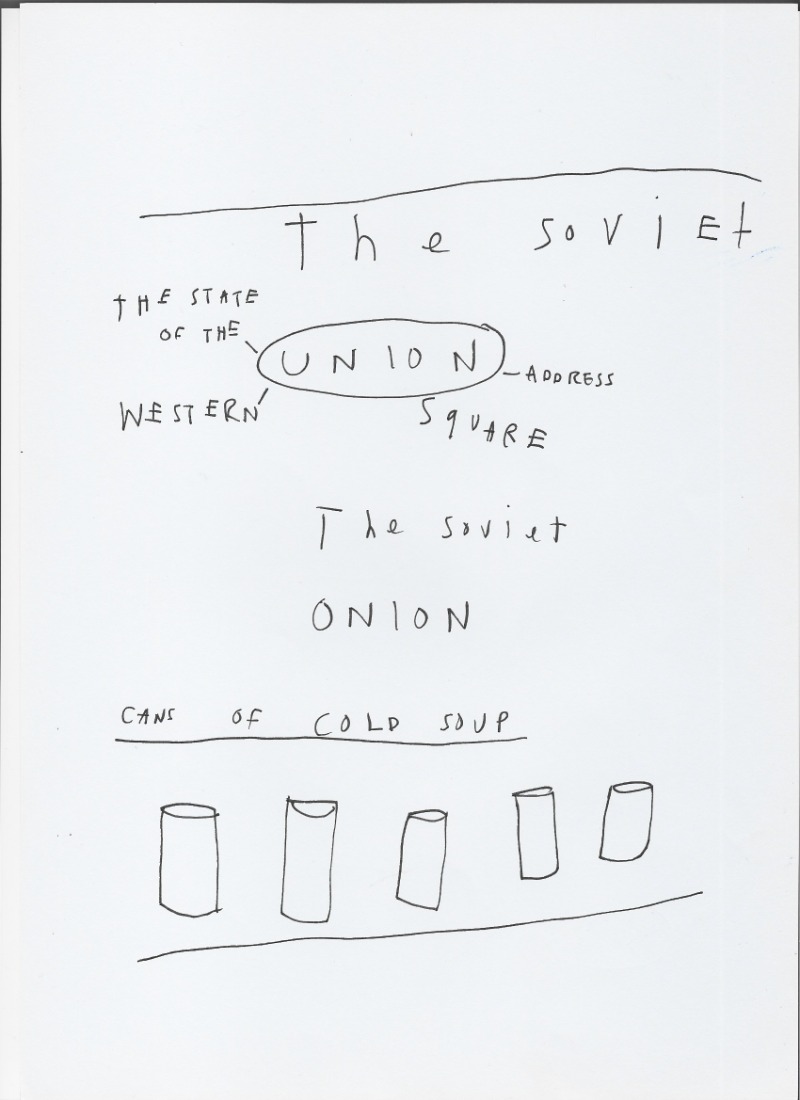 The Soviet
THE STATE
OF THE
UNION
ADDRESS
WESTERN
SQUARE
The Soviet
ONION
CANS OF COLD SOUP